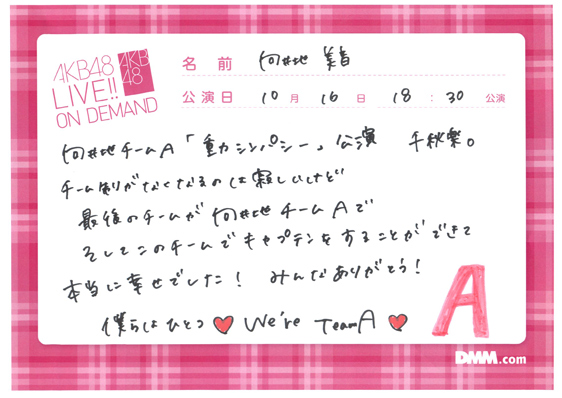 AKB48
LIVE!!
ON DEMAND
AKB
48
名前 向井地 美音
公演日 10月 16日 18:30 公演
向井地チームA「重力シンパシー」公演 千秋楽。
チーム制がなくなるのは寂しいけど
最後のチームが向井地チームAで
そしてこのチームでキャプテンをすることができて
本当に幸せでした! みんなありがとう!
僕らはひとつ ♥ We're TeamA ♥
A
DMM.com